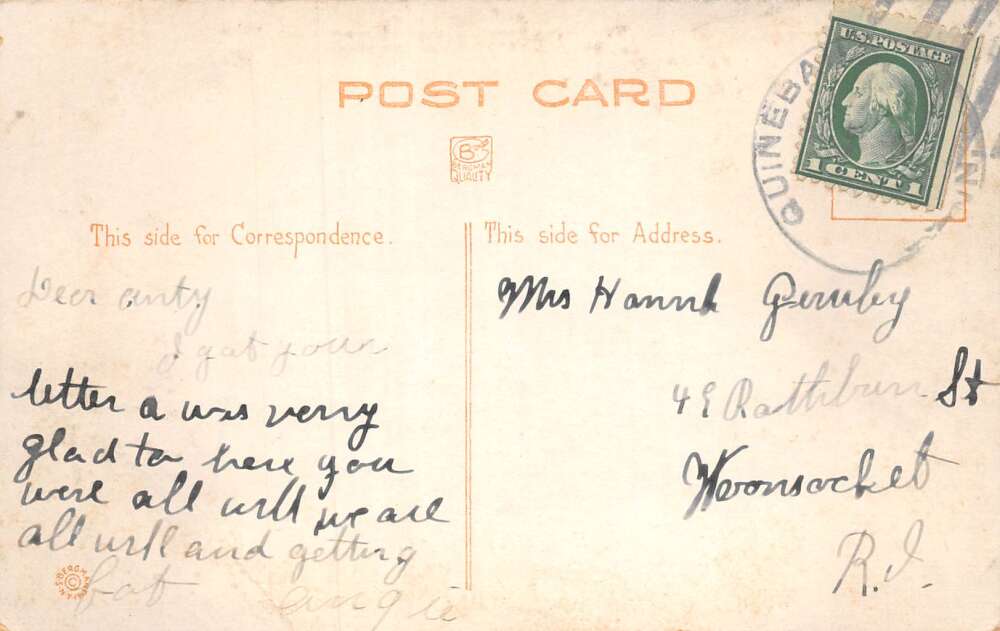 POST CARD
U.S. POSTAGE
1 CENT 1
QUINEBA
B
BERGMAN
QUALITY
This side for Correspondence.
This side for Address.
Deer anty
I gat your
letter a was verry
glad to here you
were all well we are
all well and getting
fat angie
Mrs Hannh
Rathburn St
Woonsocket
R.I.